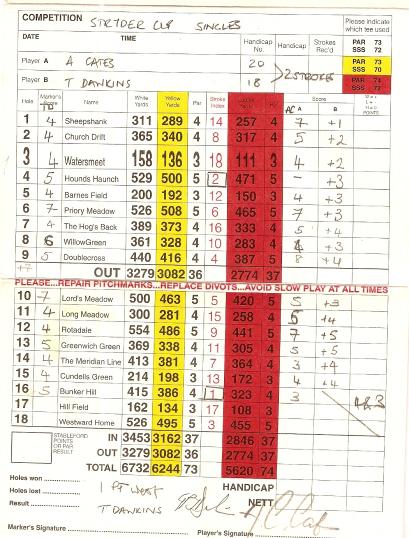 COMPETITION STRYDER CUP SINGLES
Please indicate which tee used
DATE TIME
Handicap No. Handicap Strokes Rec'd
PAR 73
SSS 72
Player A A CATES 20
PAR 73
SSS 70
Player B T DAWKINS 18 2 STROKES
PAR 74
SSS 72
Hole Marker's Score Name White Yards Yellow Yards Par Stroke Index Par Score A B
TD AC
1 4 Sheepshank 311 289 4 14 257 4 7 +1
2 4 Church Drift 365 340 4 8 317 4 5 +2
3 4 Watersmeet 158 136 3 18 111 3 4 +2
4 5 Hounds Haunch 529 500 5 2 471 5 - +3
5 4 Barnes Field 200 192 3 12 150 3 4 +3
6 7 Priory Meadow 526 508 5 6 465 5 7 +3
7 4 The Hog's Back 389 373 4 16 333 4 5 +4
8 6 Willow Green 361 328 4 10 283 4 4 +3
9 5 Doublecross 440 416 4 4 387 5 8 +4
+7 OUT 3279 3082 36 2774 37
PLEASE...REPAIR PITCHMARKS...REPLACE DIVOTS...AVOID SLOW PLAY AT ALL TIMES
10 7 Lord's Meadow 500 463 5 5 420 5 5 +3
11 4 Long Meadow 300 281 4 15 258 4 6 +4
12 4 Rotadale 554 486 5 9 441 5 7 +5
13 5 Greenwich Green 369 338 4 11 305 4 5 +5
14 4 The Meridian Line 413 381 4 7 364 4 3 +4
15 4 Cundells Green 214 198 3 13 172 3 4 +4
16 5 Bunker Hill 415 386 4 1 323 4 3
17 Hill Field 162 134 3 17 108 3
4&3
18 Westward Home 526 495 5 3 455 5
STABLEFORD POINTS OR PAR RESULT
IN 3453 3162 37 2846 37
OUT 3279 3082 36 2774 37
TOTAL 6732 6244 73 5620 74
Holes won HANDICAP
Holes lost 1 PT West NETT
Result T DAWKINS
Marker's Signature Player's Signature